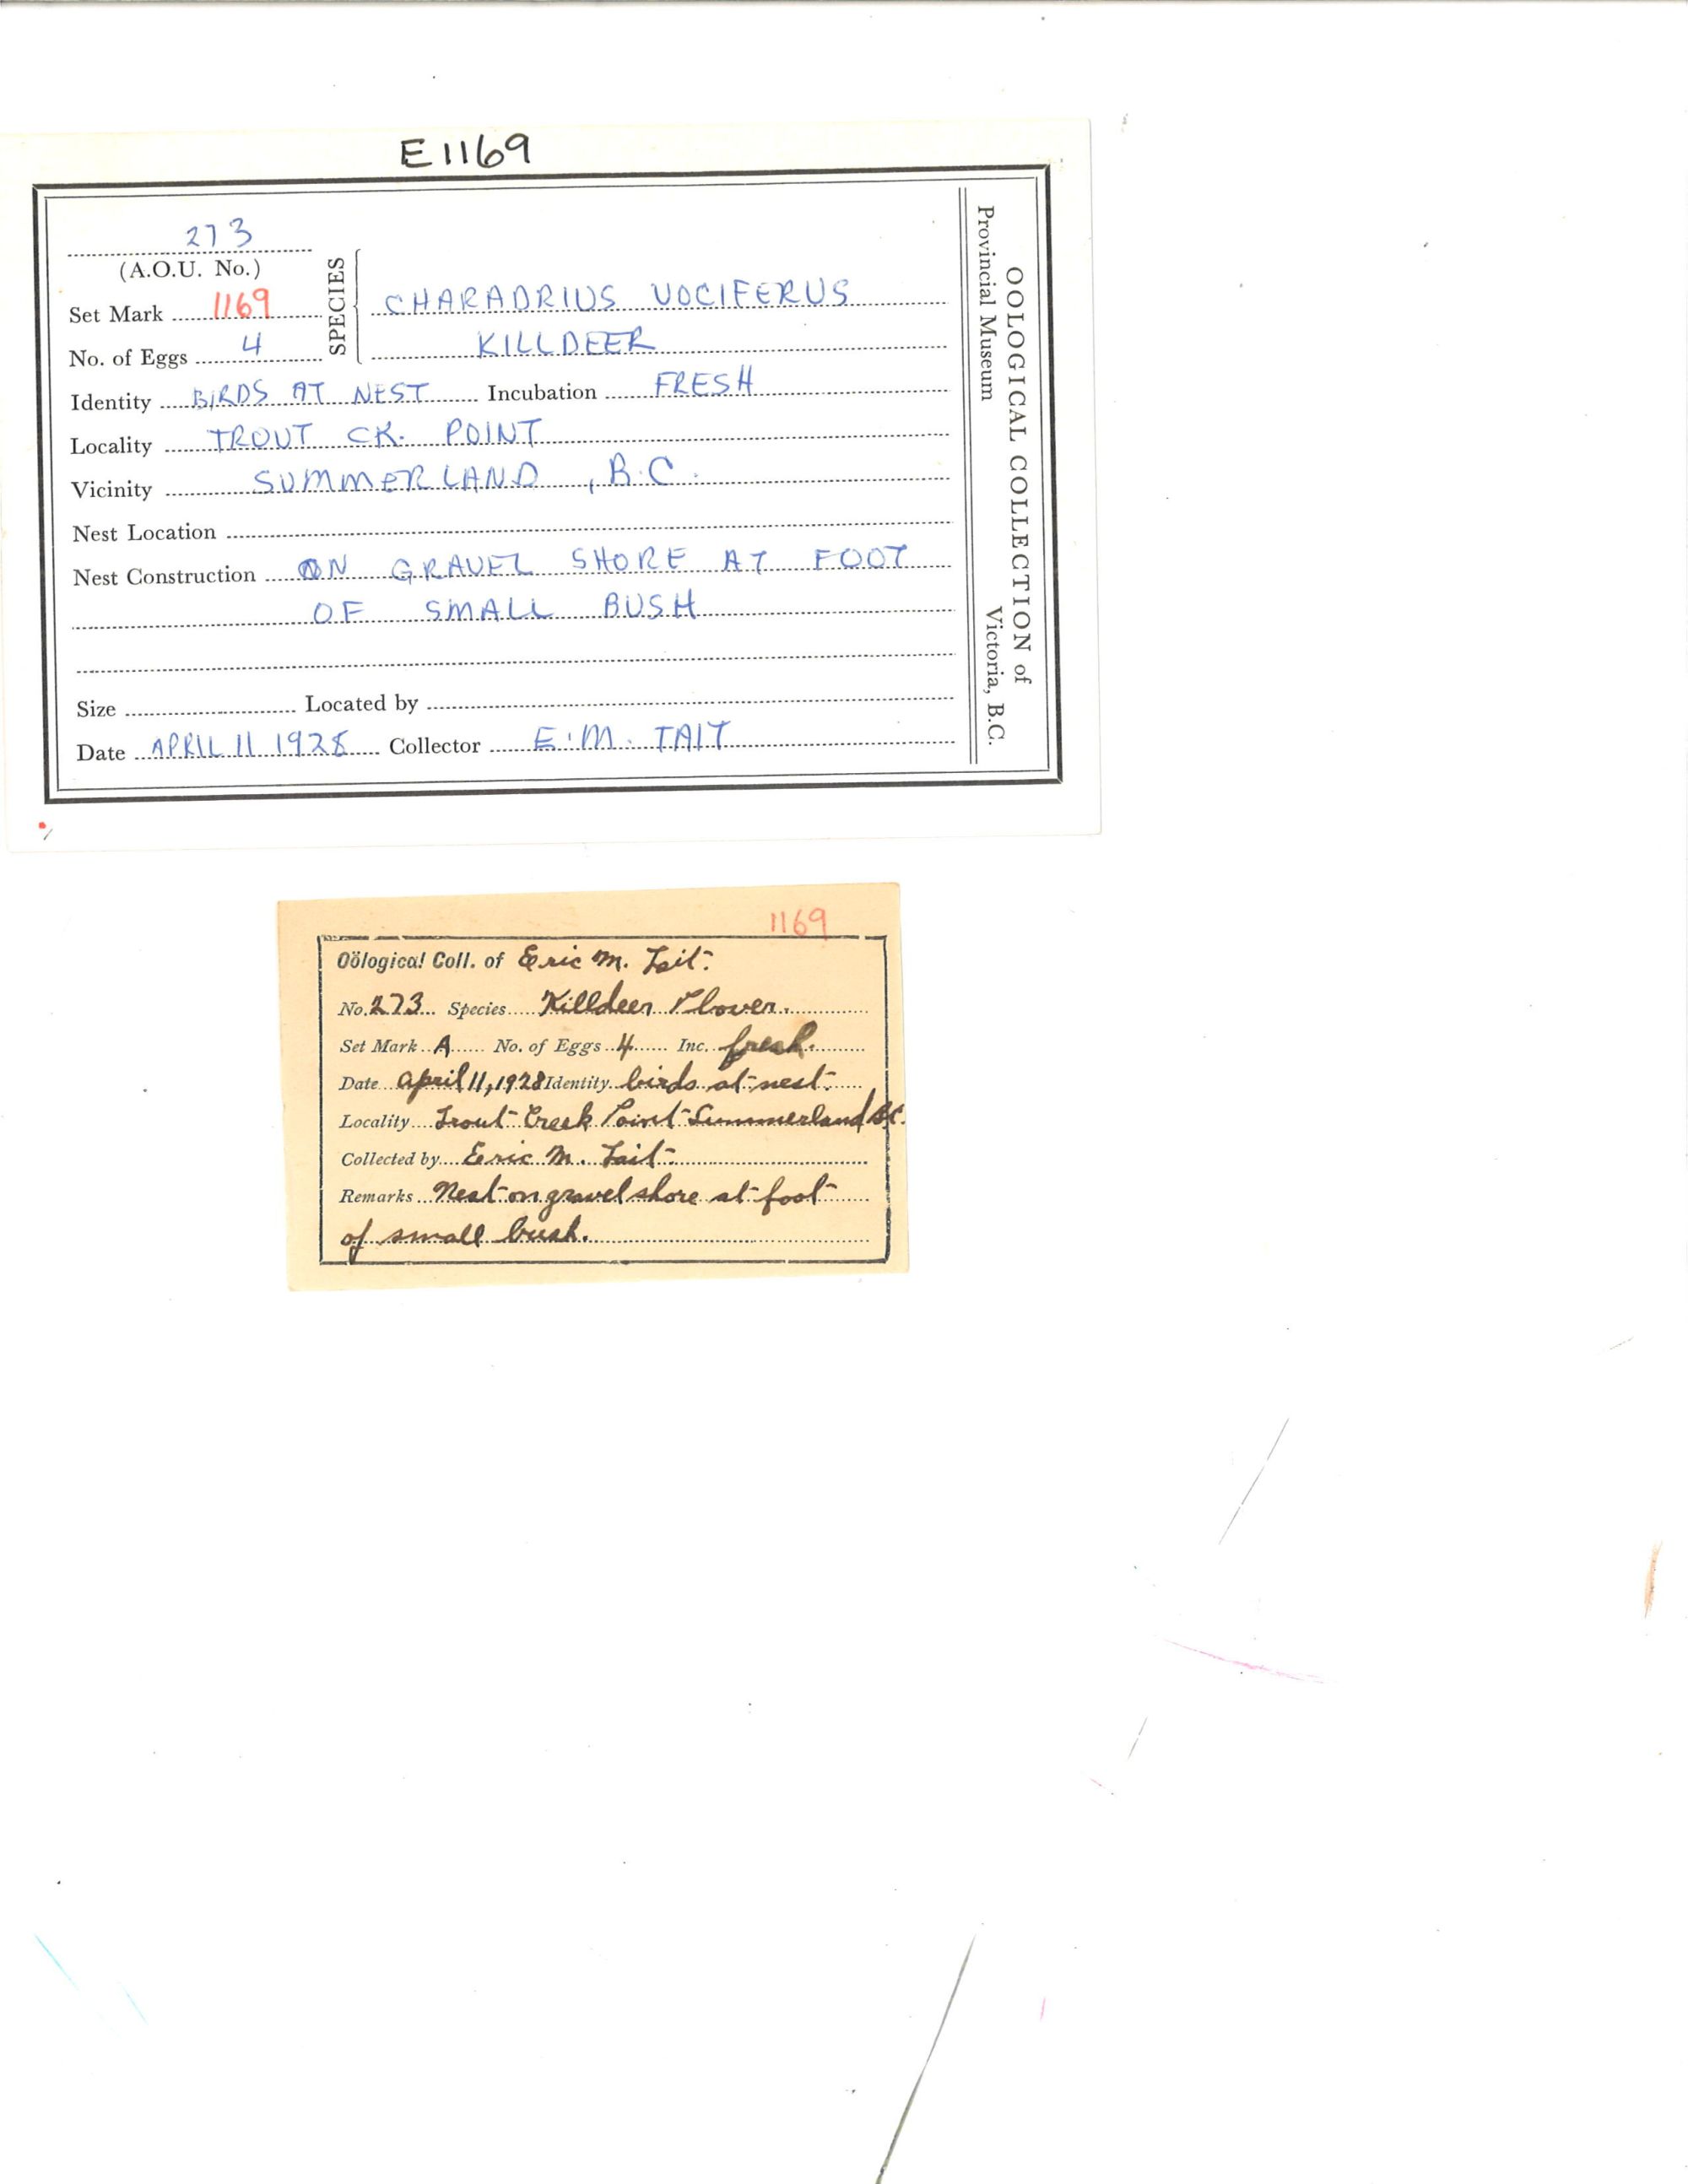 E1169
273
(A.O.U. No.)
SPECIES
Set Mark 1169
CHARADRIUS VOCIFERUS
No. of Eggs 4
KILLDEER
Identity BIRDS AT NEST Incubation FRESH
Locality TROUT CK. POINT
Vicinity SUMMERLAND, B.C.
Nest Location
Nest Construction ON GRAVEL SHORE AT FOOT
OF SMALL BUSH
Size Located by
Date APRIL 11 1928 Collector E.M. TAIT
OOLOGICAL COLLECTION of
Provincial Museum Victoria, B.C.
1169
Oölogical Coll. of Eric M. Tait.
No. 273 Species Killdeer Plover.
Set Mark A No. of Eggs 4 Inc. fresh.
Date April 11, 1928 Identity birds at nest.
Locality Trout Creek Point Summerland B.C.
Collected by Eric M. Tait.
Remarks Nest on gravel shore at foot
of small bush.